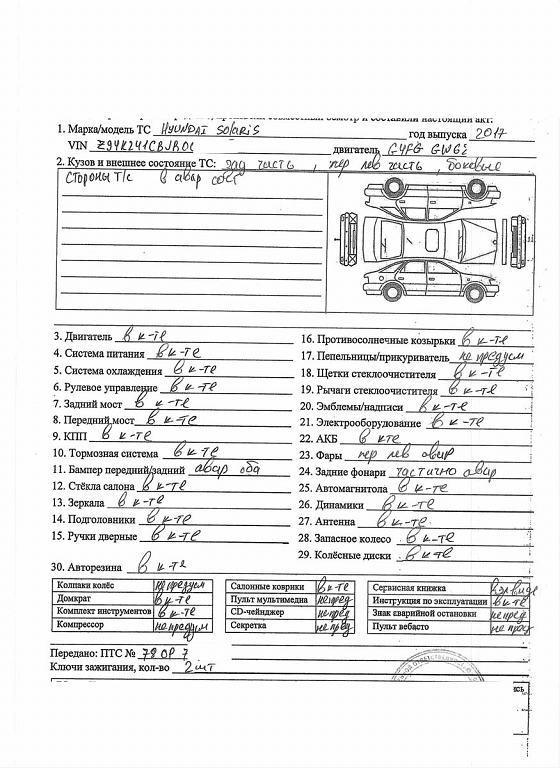 совместный осмотр и составили настоящий акт:
1. Марка/модель ТС HYUNDAI Solaris год выпуска 2017
VIN двигатель G4FG
2. Кузов и внешнее состояние ТС: зад часть, пер лев часть, боковые
стороны Т/с в авар сост
3. Двигатель в к-те
4. Система питания в к-те
5. Система охлаждения в к-те
6. Рулевое управление в к-те
7. Задний мост в к-те
8. Передний мост в к-те
9. КПП в к-те
10. Тормозная система в к-те
11. Бампер передний/задний авар оба
12. Стёкла салона в к-те
13. Зеркала в к-те
14. Подголовники в к-те
15. Ручки дверные в к-те
16. Противосолнечные козырьки в к-те
17. Пепельницы/прикуриватель не предусм
18. Щетки стеклоочистителя в к-те
19. Рычаги стеклоочистителя в к-те
20. Эмблемы/надписи в к-те
21. Электрооборудование в к-те
22. АКБ в кте
23. Фары пер лев авар
24. Задние фонари частично авар
25. Автомагнитола в к-те
26. Динамики в к-те
27. Антенна в к-те
28. Запасное колесо в к-те
29. Колёсные диски в к-те
30. Авторезина в к-те
Колпаки колёс не предусм
Домкрат в к-те
Комплект инструментов в к-те
Компрессор не предусм
Салонные коврики в к-те
Пульт мультимедиа не пред
CD-чейнджер не пред
Секретка не пред
Сервисная книжка
Инструкция по эксплуатации в к-те
Знак аварийной остановки не пред
Пульт вебасто не пред
Передано: ПТС №
Ключи зажигания, кол-во 2 шт